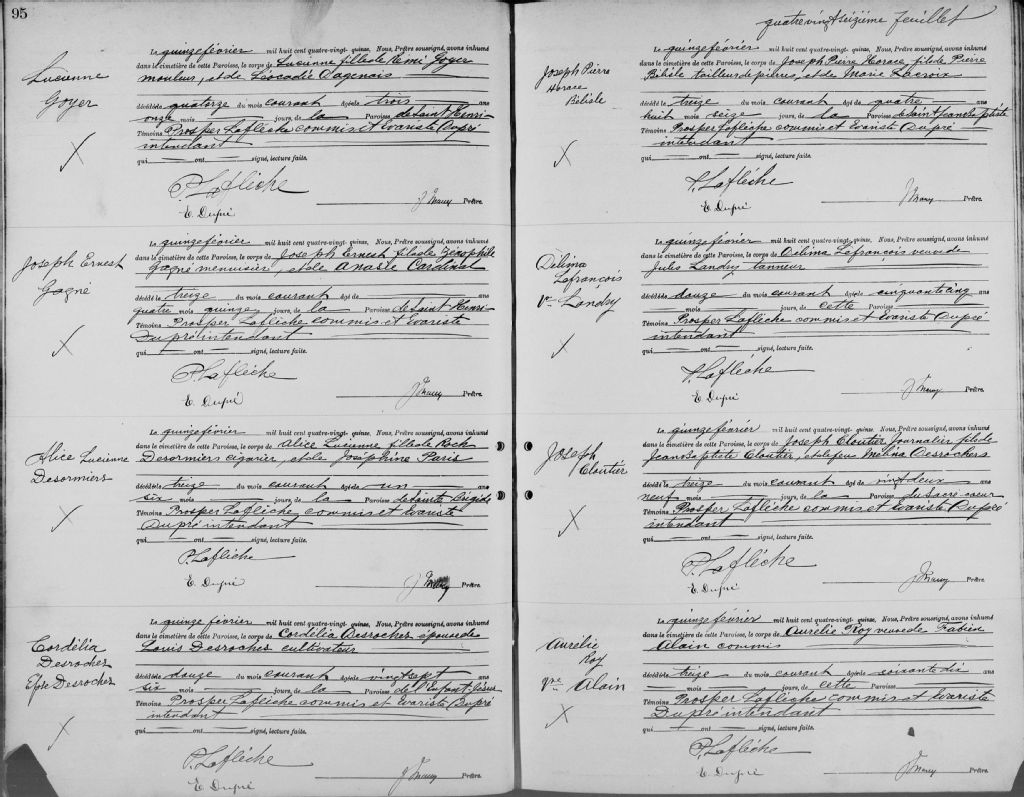 95
Lucienne
Goyer
Le quinze février mil huit cent quatre-vingt- quinze, Nous, Prêtre soussigné, avons inhumé
dans le cimetière de cette Paroisse, le corps de Lucienne fille de Remi Goyer
mouleur, et de Léocadie Dagenais
décédée le quatorze du mois courant âgée de trois ans
onze mois jours, de la Paroisse de Saint Henri-
Témoins Prosper Laflèche commis et Evariste Dupré
intendant
qui ont signé, lecture faite.
P. Laflèche
E. Dupré
Prêtre.
Joseph Ernest
Gagné
Le quinze février mil huit cent quatre-vingt- quinze, Nous, Prêtre soussigné, avons inhumé
dans le cimetière de cette Paroisse, le corps de Joseph Ernest fils de
Gagné menuisier, et de Cardinal
décédé le treize du mois courant âgé de ans
quatre mois quinze jours, de la Paroisse de Saint Henri-
Témoins Prosper Laflèche commis et Evariste
Dupré intendant
qui ont signé, lecture faite.
P. Laflèche
E. Dupré
Prêtre.
Alice Lucienne
Desormiers
Le quinze février mil huit cent quatre-vingt- quinze, Nous, Prêtre soussigné, avons inhumé
dans le cimetière de cette Paroisse, le corps de Alice Lucienne fille de Roch
Desormiers cigarier, et de Joséphine Paris
décédée le treize du mois courant âgée de un an
six mois jours, de la Paroisse de Sainte Brigide
Témoins Prosper Laflèche commis et Evariste
Dupré intendant
qui ont signé, lecture faite.
P. Laflèche
E. Dupré
Prêtre.
Cordélia
Desroches
Epse Desroches
Le quinze février mil huit cent quatre-vingt- quinze, Nous, Prêtre soussigné, avons inhumé
dans le cimetière de cette Paroisse, le corps de Cordélia Desroches épouse de
Louis Desroches cultivateur
décédée le douze du mois courant âgée de vingt sept ans
six mois jours, de la Paroisse de l'Enfant-Jésus
Témoins Prosper Laflèche commis et Evariste Dupré
intendant
qui ont signé, lecture faite.
P. Laflèche
E. Dupré
Prêtre.
quatrevingt seizième feuillet
Joseph Pierre
Horace
Bélisle
Le quinze février mil huit cent quatre-vingt- quinze, Nous, Prêtre soussigné, avons inhumé
dans le cimetière de cette Paroisse, le corps de Joseph Pierre Horace, fils de Pierre
Bélisle tailleur de pierres, et de Marie Lacroix
décédé le treize du mois courant âgé de quatre ans
huit mois seize jours, de la Paroisse de Saint Jean Baptiste
Témoins Prosper Laflèche commis et Evariste Dupré
intendant
qui ont signé, lecture faite.
P. Laflèche
E. Dupré
Prêtre.
Délima
Lafrançois
Ve Landry
Le quinze février mil huit cent quatre-vingt- quinze, Nous, Prêtre soussigné, avons inhumé
dans le cimetière de cette Paroisse, le corps de Délima Lafrançois veuve de
Jules Landry tanneur
décédée le douze du mois courant âgée de cinquante cinq ans
mois jours, de cette Paroisse
Témoins Prosper Laflèche commis et Evariste Dupré
intendant
qui ont signé, lecture faite.
P. Laflèche
E. Dupré
Prêtre.
Joseph
Cloutier
Le quinze février mil huit cent quatre-vingt- quinze, Nous, Prêtre soussigné, avons inhumé
dans le cimetière de cette Paroisse, le corps de Joseph Cloutier Journalier fils de
Jean Baptiste Cloutier, et de feu Melina Desrochers
décédé le treize du mois courant âgé de vingt deux ans
neuf mois jours, de la Paroisse du Sacré-coeur
Témoins Prosper Laflèche commis et Evariste Dupré
intendant
qui ont signé, lecture faite.
P. Laflèche
E. Dupré
Prêtre.
Aurélie
Roy
Vve Alain
Le quinze février mil huit cent quatre-vingt- quinze, Nous, Prêtre soussigné, avons inhumé
dans le cimetière de cette Paroisse, le corps de Aurélie Roy veuve de Fabien
Alain commis
décédée le treize du mois courant âgée de soixante dix ans
mois jours, de cette Paroisse
Témoins Prosper Laflèche commis et Evariste
Dupré intendant
qui ont signé, lecture faite.
P. Laflèche
E. Dupré
Prêtre.